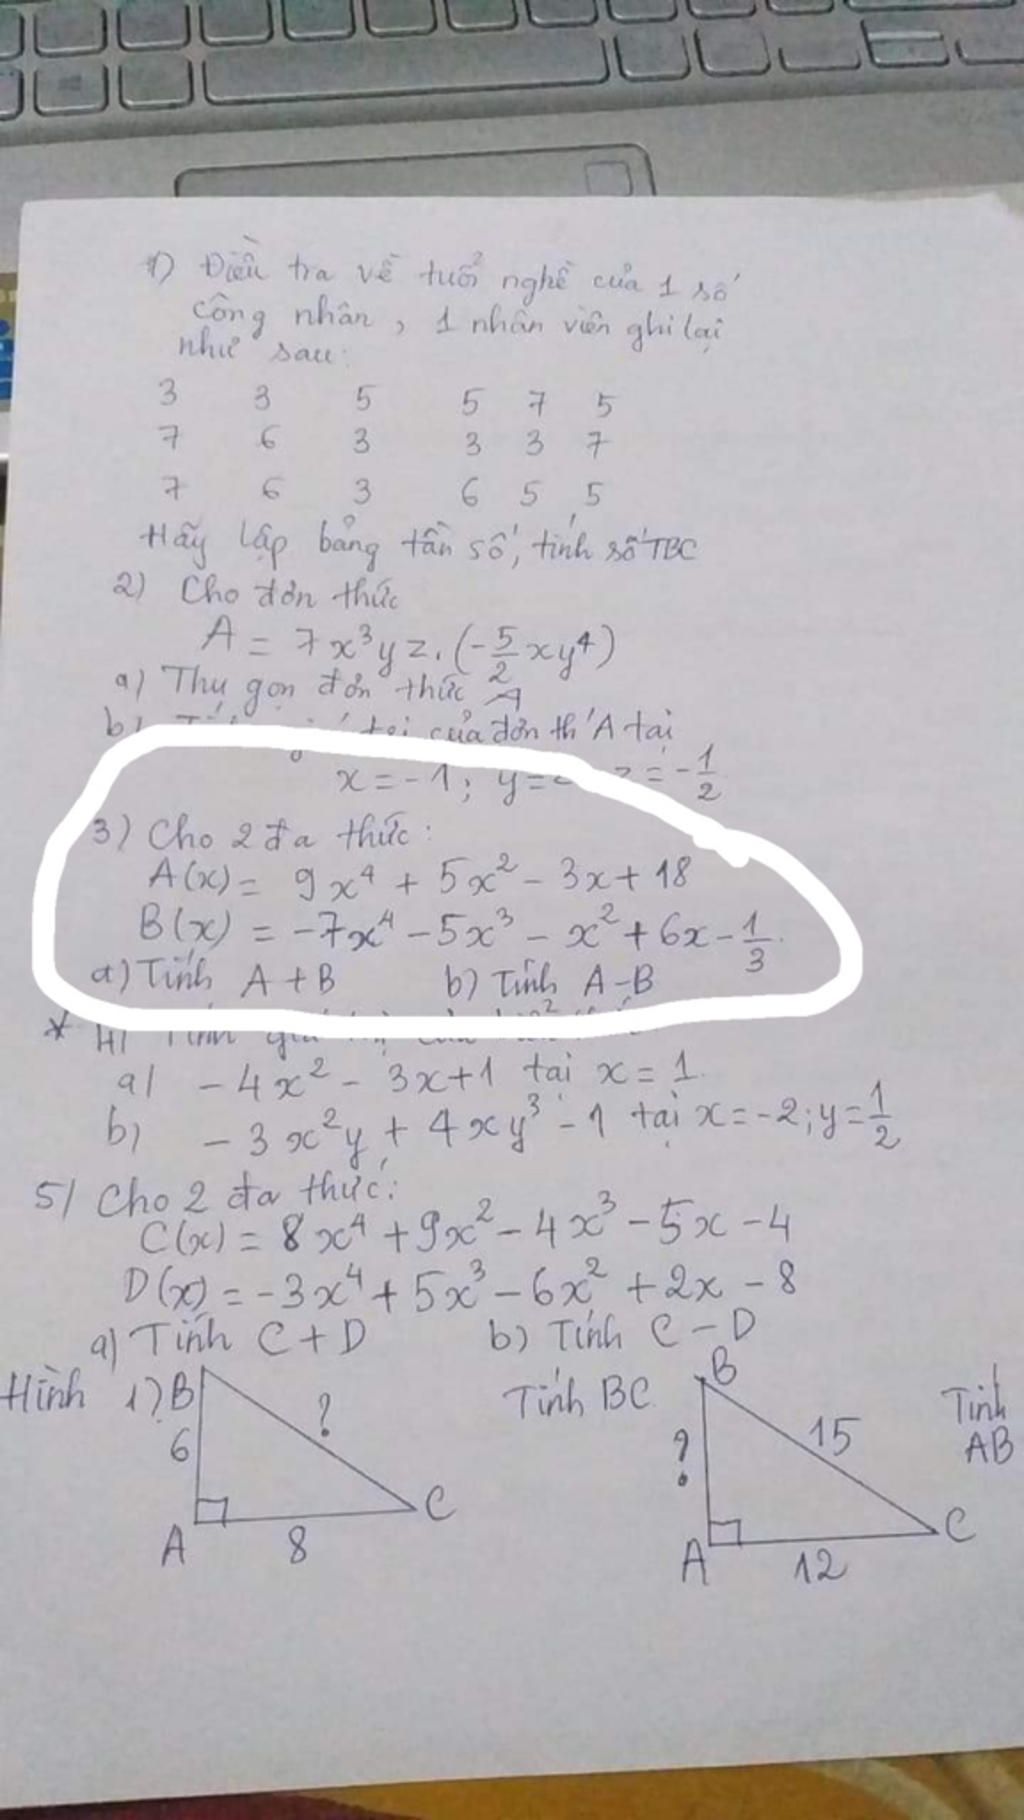 1) Điều tra về tuổi nghề của 1 số
công nhân, 1 nhân viên ghi lại
như sau:
3 3 5 5 7 5
7 6 3 3 3 7
7 6 3 6 5 5
Hãy lập bảng tần số, tính số TBC
2) Cho đơn thức
A = 7x³yz.(-5/2xy⁴)
a) Thu gọn đơn thức A
b) của đơn th' A tại
x = -1; y= z = -1/2
3) Cho 2 đa thức:
A(x) = 9x⁴ + 5x² - 3x + 18
B(x) = -7x⁴ - 5x³ - x² + 6x - 1/3.
a) Tính A + B b) Tính A - B
a/ - 4x² - 3x+1 tại x = 1.
b) - 3x²y + 4xy³ - 1 tại x = -2; y = 1/2
5/ Cho 2 đa thức:
C(x) = 8x⁴ + 9x² - 4x³ - 5x - 4
D(x) = -3x⁴ + 5x³ - 6x² + 2x - 8
a) Tính C + D b) Tính C - D
Hình 1) B ? Tính BC B 15 Tính
6 ? AB
A 8 C A 12 C